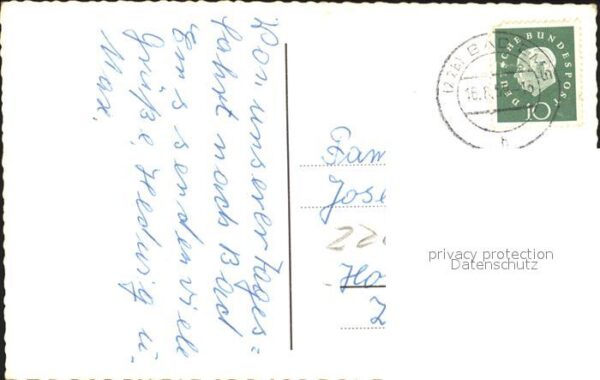 Von unserer Tages=
fahrt nach Bad
Ems senden viele
Grüße, Hedwig u.
Max.
DEUTSCHE BUNDESPOST
10
(22b) BAD EMS
h
Fam
Jose
Ho
privacy protection
Datenschutz